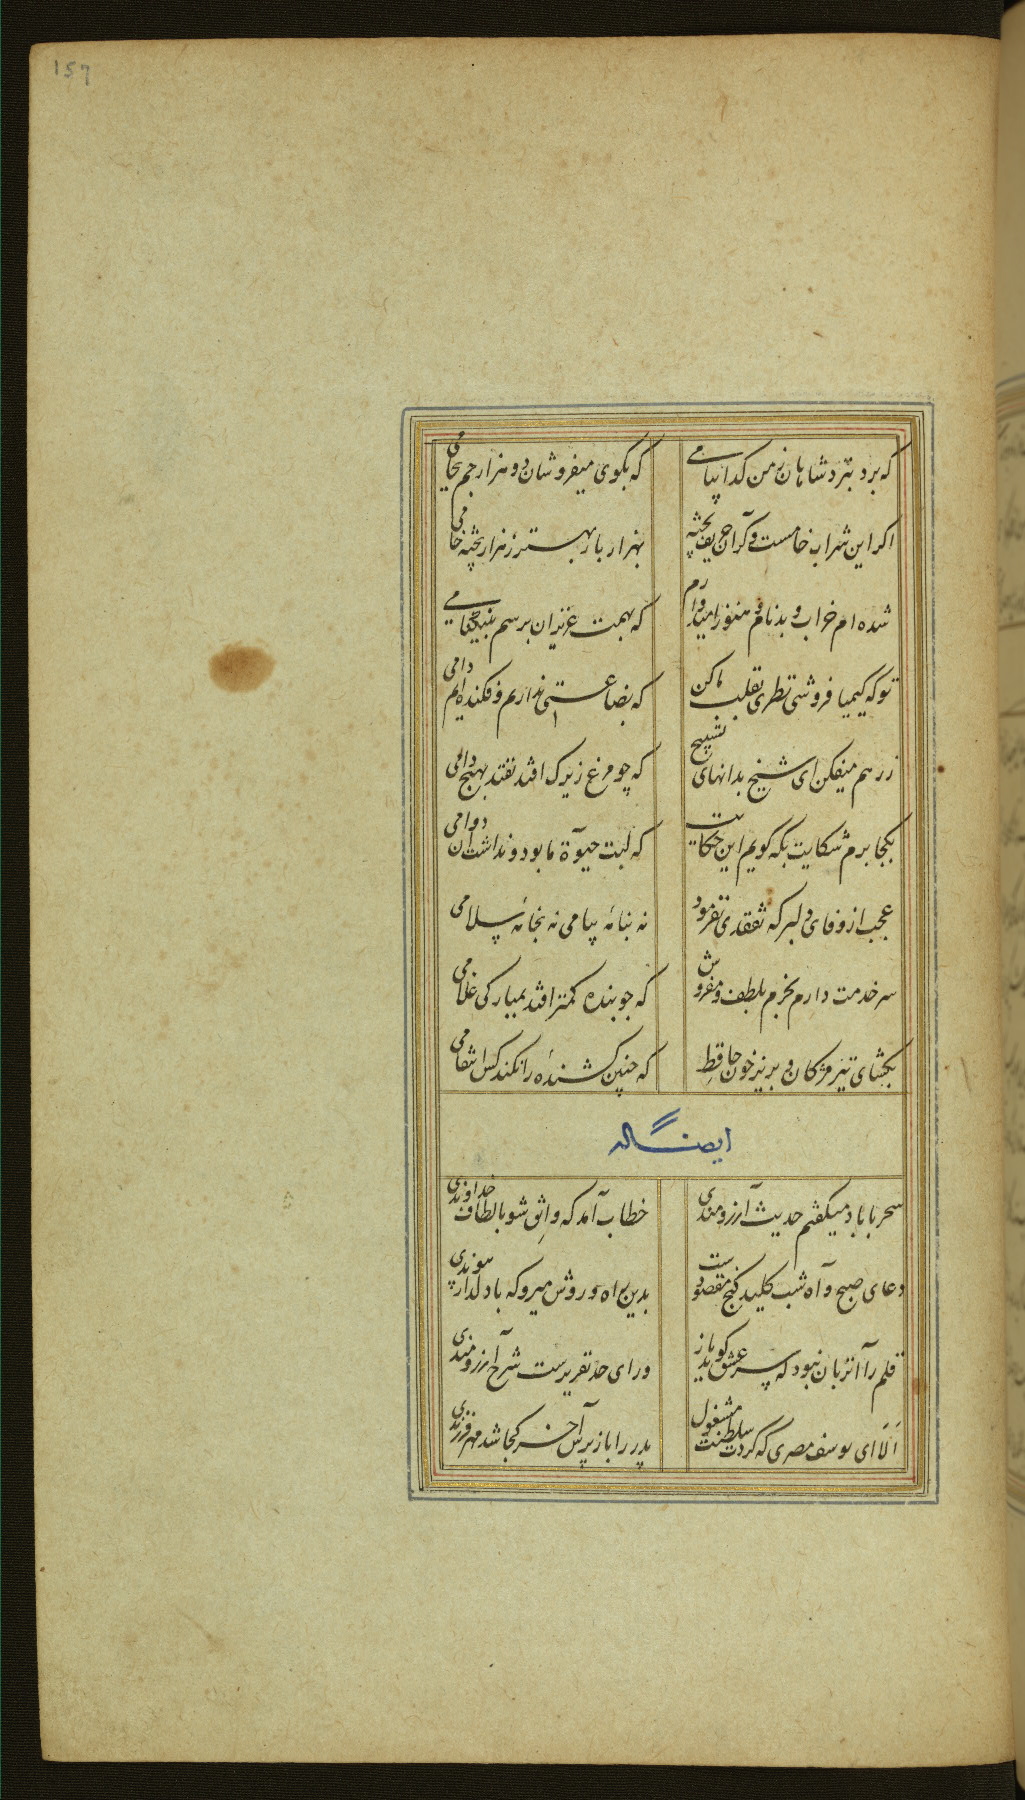 157
که برد بنزد شاهان ز من گدا پیامی
که بکوی میفروشان دو هزار جم بجامی
اگر این شراب خامست و گر آن حریف پخته
بهزار بار بهتر ز هزار پخته خامی
شده ام خراب و بدنام و هنوز امیدوارم
که بهمت عزیزان برسم بنیکنامی
تو که کیمیا فروشی نظری بقلب ما کن
که بضاعتی نداریم و فکنده ایم دامی
ز رهم میفکن ای شیخ بدانهای تسبیح
که چو مرغ زیرک افتد نفتد بهیچ دامی
بکجا برم شکایت بکه گویم این حکایت
که لبت حیوة ما بود و نداشت آن دوامی
عجب از وفای دلبر که تفقدی نفرمود
نه بنامه پیامی نه بخامه سلامی
سر خدمت دارم بخرم بلطف و مفروش
که چو بنده کمتر افتد بمبارکی غلامی
بگشای تیر مژگان و بریز خون حافظ
که چنین کشنده را نکند کس انتقامی
ایضاً له
سحر با باد میگفتم حدیث آرزومندی
خطاب آمد که واثق شو بالطاف خداوندی
دعای صبح و آه شب کلید گنج مقصودست
بدین راه و روش میرو که با دلدار پیوندی
قلم را آن زبان نبود که سر عشق گوید باز
ورای حد تقریرست شرح آرزومندی
الا ای یوسف مصری که کردت سلطنت مشغول
پدر را باز پرس آخر کجا شد مهر فرزندی